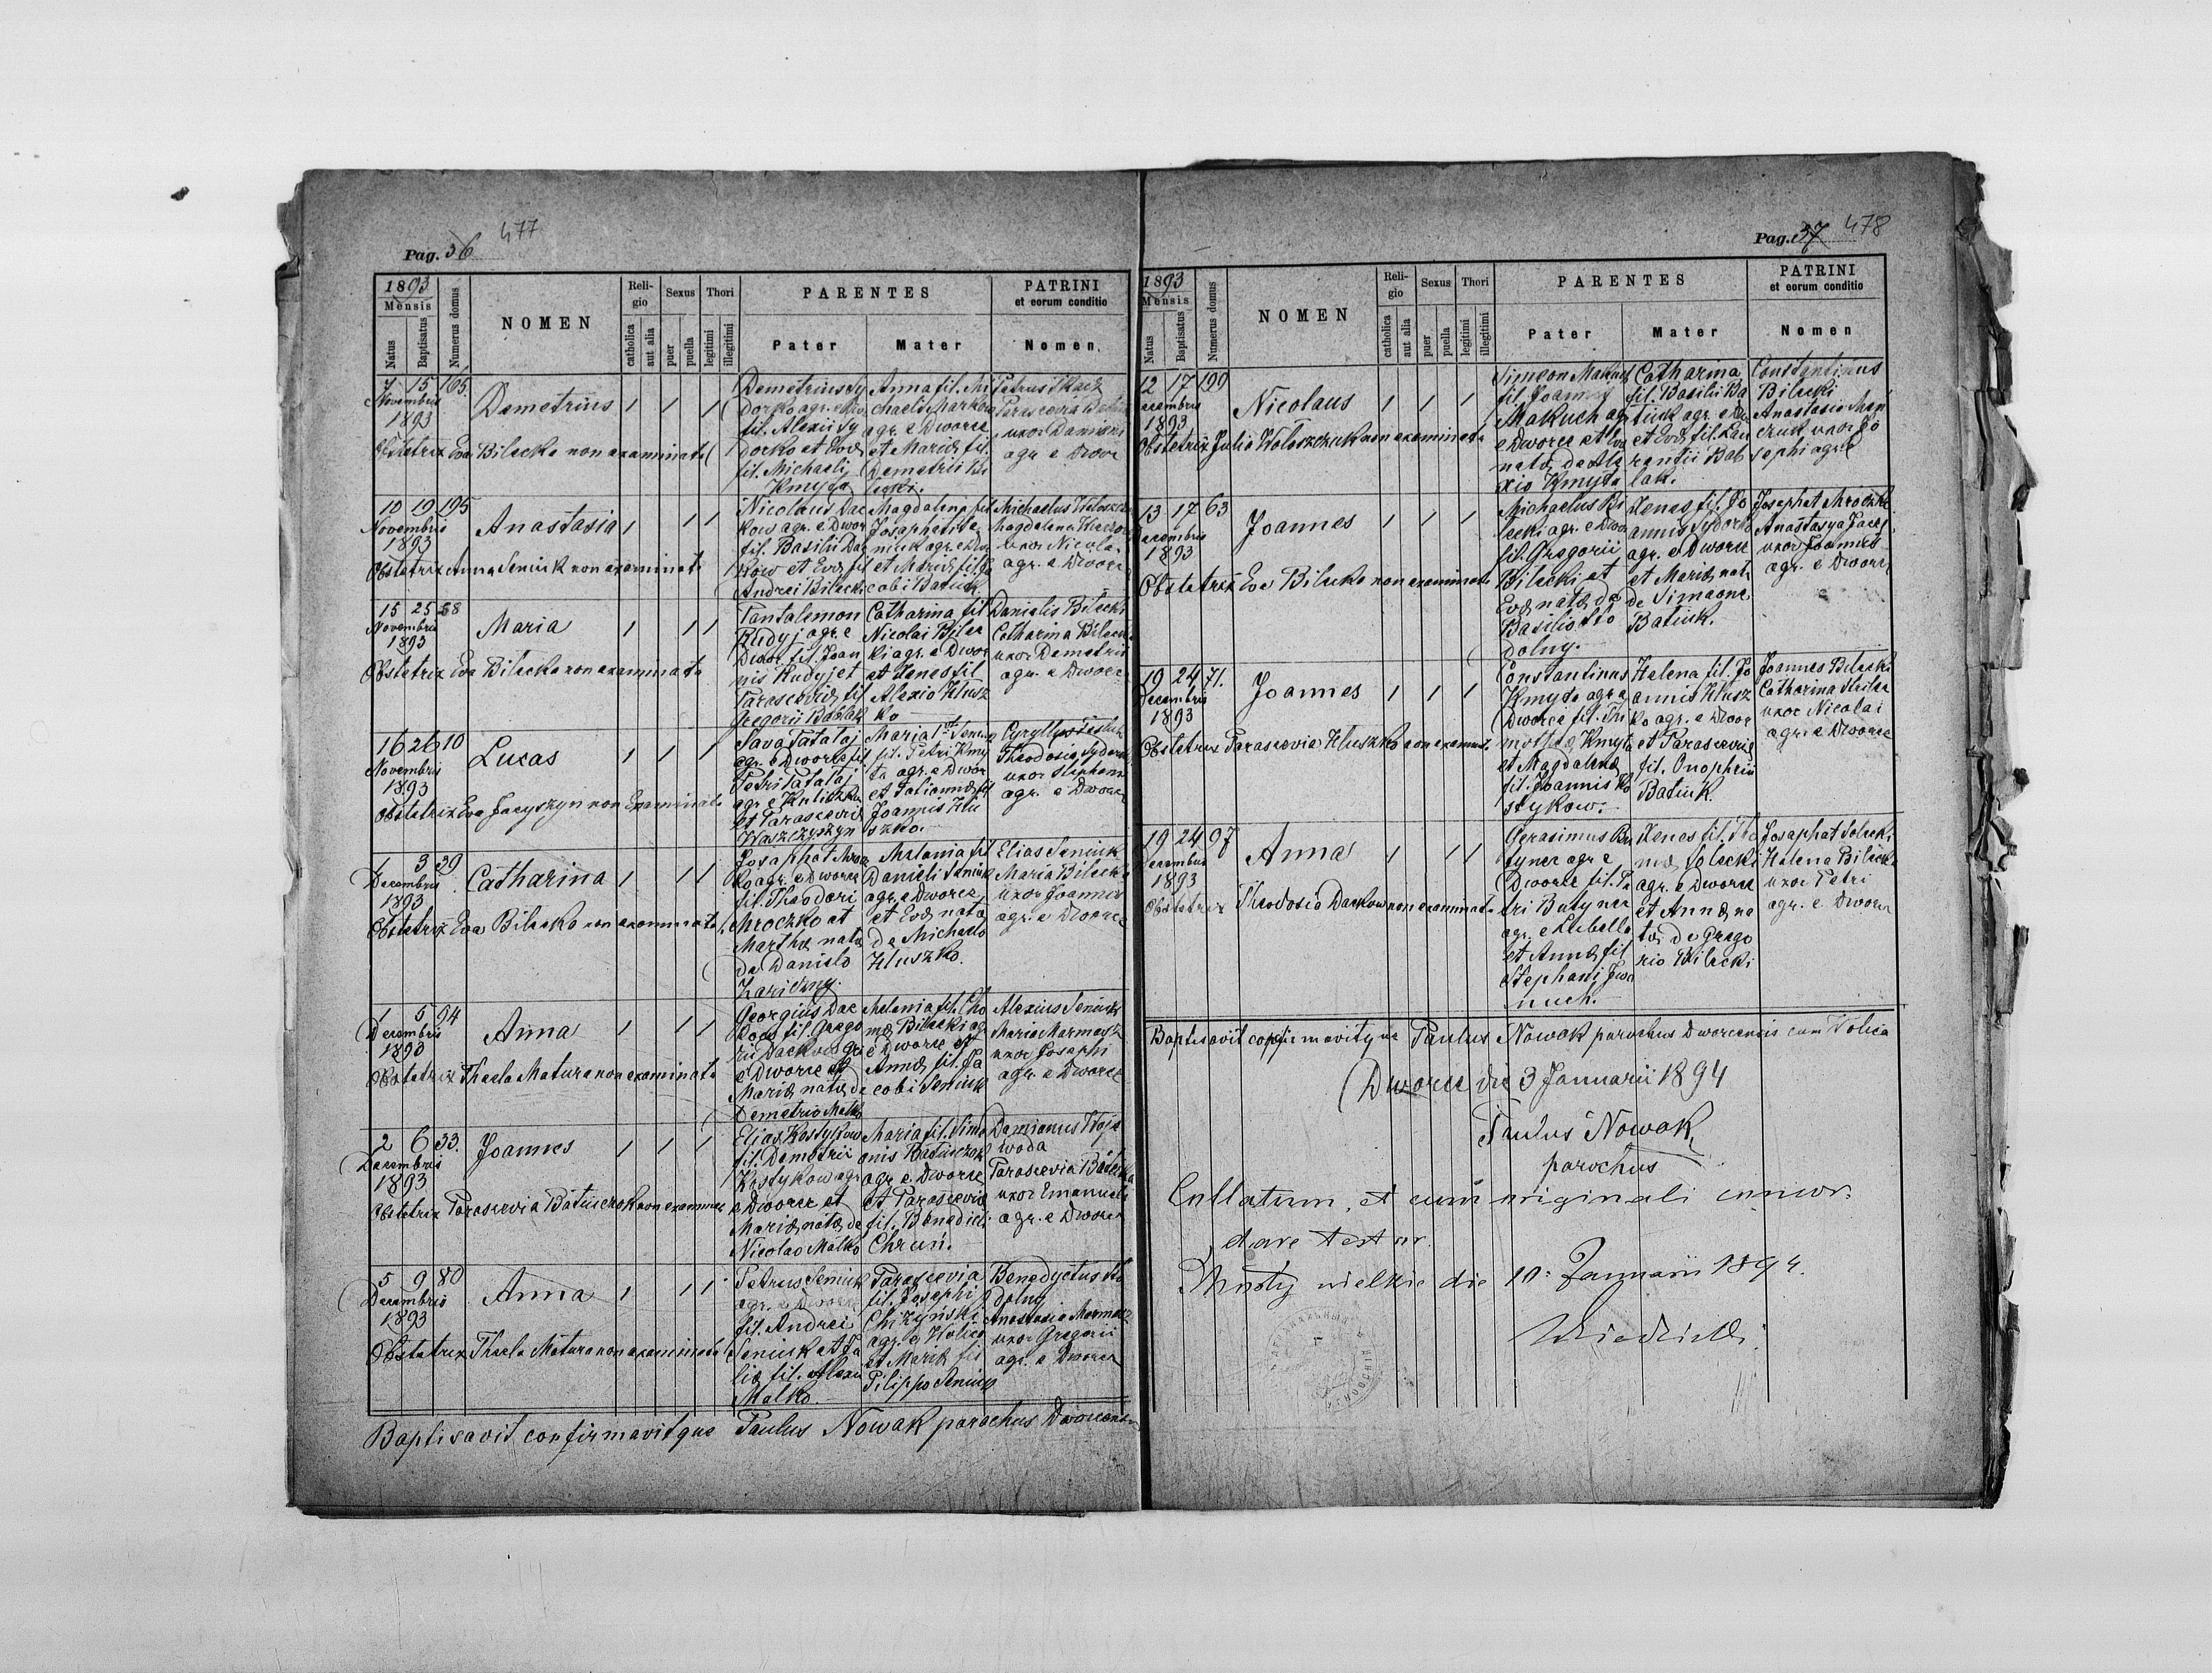 477
Pag. 36
1893
Mensis
Natus
Baptisatus
Numerus domus
NOMEN
Religio
catholica
aut alia
Sexus
puer
puella
Thori
legitimi
illegitimi
PARENTES
Pater
Mater
PATRINI
et eorum conditio
Nomen
7 15 165
Novembris
1893
Demetrius
Obstetrix Eva Bilecka non examinata
Demetrius Sy
dorko agr. e Dwo
fil. Alexii Sy
dorko et Evæ
fil. Michaelis
Kmyta
Anna fil. Mi
chaelis
agr. e Dworce
et Mariæ fil.
Demetrii Bi
lecki.
Petrus Tkacz
Parascevia
uxor Danielis
agr. e Dworce
10 19 195
Novembris
1893
Anastasia
Obstetrix Anna Seniuk non examinata
Nicolaus Dac
kow agr. e Dwor
fil. Basilii Dac
kow et Evæ fil
Andrei Bilecki
Magdalena fil
Josaphati Se
niuk agr. e Dwo
et Mariæ fil. Ja
cobi Batiuk.
Michaelus
Magdalena
uxor Nicolai
agr. e Dworce
15 25 58
Novembris
1893
Maria
Obstetrix Eva Bilecka non examinata
Pantalemon
Rudyj agr. e
Dwor. fil. Joan
nis Rudyj et
Parasceviæ fil
Gregorii Bablak
Catharina fil
Nicolai Bilec
ki agr. e Dwor
et Xenes fil
Alexio Hlusz
ko
Danielis Bilecki
Catharina Bilecki
uxor Demetrii
agr. e Dworce
16 26 10
Novembris
1893
Lucas
Obstetrix Eva Jacyszyn non Examinata
Sava Patałaj
agr. e Dworce fil.
Petri Patałaj
agr. e
et Parascevia
Waszczyszyn
Maria
fil. Petri Kmy
ta agr. e Dwor
et Tatiannæ fil
Joannis Hlu
szko.
Cyryllus
Theodosia
uxor Stephani
agr. e Dworce
1 3 29
Decembris
1893
Catharina
Obstetrix Eva Bilecka non examinata
Josaphat Mrocz
ko agr. e Dworce
fil. Theodori
Mroczko et
Marthæ natæ
de Danielo
Zariczny.
Melania fil
Danieli Seniuk
agr. e Dworce
et Evæ natæ
de Michaelo
Hluszko.
Elias Seniuk
Maria Bilecka
uxor Joannis
agr. e Dworce
1 5 94
Decembris
1893
Anna
Obstetrix Thecla Matura non examinata
Georgius Dac
kow fil. Grego
rii Dackow agr
e Dworce et
Mariæ natæ de
Demetrio Malko
Melania fil. Tho
mæ Bilecki agr
e Dworce et
Annæ fil. Ja
cobi Seniuk
Alexius Seniuk
Maria Marmasz
uxor Josaphi
agr. e Dworce
2 6 33.
Decembris
1893
Joannes
Obstetrix Parascevia Batiuczok non examina
Elias Kostykow
fil. Demetrii
Kostykow agr
e Dworce et
Mariæ natæ de
Nicolao Malko
Maria fil. Sime
onis Batiuczok
agr. e Dworce
et Parasceviæ
fil. Benedicti
Chruń.
Damianus Woje
woda
Parascevia
uxor Emanuelis
agr. e Dworce
5 9 80
Decembris
1893
Anna
Obstetrix Thecla Matura non examinata
Petrus Seniuk
agr. e Dworce
fil. Andrei
Seniuk et Ju
liæ fil. Alexii
Malko.
Parascevia
fil. Josephi
Chiżyński
agr. e Wolica
et Mariæ fil
Pilippo Seniuk
Benedyctus Ho
dolny
Anastasia Marmasz
uxor Gregorii
agr. e Dworce
Baptisavit confirmavitque Paulus Nowak parochus Dworcensis
478
Pag. 37
1893
Mensis
Natus
Baptisatus
Numerus domus
NOMEN
Religio
catholica
aut alia
Sexus
puer
puella
Thori
legitimi
illegitimi
PARENTES
Pater
Mater
PATRINI
et eorum conditio
Nomen
12 17 199
Decembris
1893
Nicolaus
Obstetrix Julia Woloszczuk non examinata
Simeon Makuch
fil. Joannis
Makuch agr
e Dworce et Eva
natæ de Ale
xio Kmyta
Catharina
fil. Basilii Ba
tiuk agr. e Dwo
et Evæ fil. Lau
rentii Bab
lak.
Constantinus
Bilecki
Anastasia
uxor Jo
sephi agr. e
13 17 63
Decembris
1893
Joannes
Obstetrix Eva Bilecka non examinata
Michaelus Bi
lecki agr. e Dwo
fil. Gregorii
Bilecki et
Evæ natæ de
Basilio Ho
dolny.
Xenes fil. Jo
annis Sydorko
agr. e Dworce
et Mariæ natæ
de Simeone
Batiuk.
Josephat Mroczko
Anastasya
uxor Joannis
agr. e Dworce
19 24 71.
Decembris
1893
Joannes
Obstetrix Parascevia Hluszko non examinat.
Constantinus
Kmyta agr. e
Dworce fil. Thi
mothæ Kmyta
et Magdalenæ
fil. Joannis Ko
stykow.
Helena fil. Jo
annis Hlusz
ko agr. e Dwor
et Parasceviæ
fil. Onophrii
Batiuk.
Joannes Bilecki
Catharina
uxor Nicolai
agr. e Dworce
19 24 97
Decembris
1893
Anna
Obstetrix Theodosia Dackow non examinata
Gerasimus Bu
tyner agr. e
Dworce fil. Pe
tri Butyner
agr. e
et Annæ fil
Stephani Iwa
nuch.
Xenes fil. Tho
mæ Solecki
agr. e Dworce
et Annæ na
tæ de Grego
rio Bilecki
Josaphat Solecki
Helena Bilecka
uxor Petri
agr. e Dworce
Baptisavit confirmavitque Paulus Nowak parochus Dworcensis cum Wolica
Dworce die 3 Januarii 1894
Paulus Nowak
parochus
Collatum, et cum originali concor-
dare testor.
Mosty wielkie die 10. Januarii 1894.